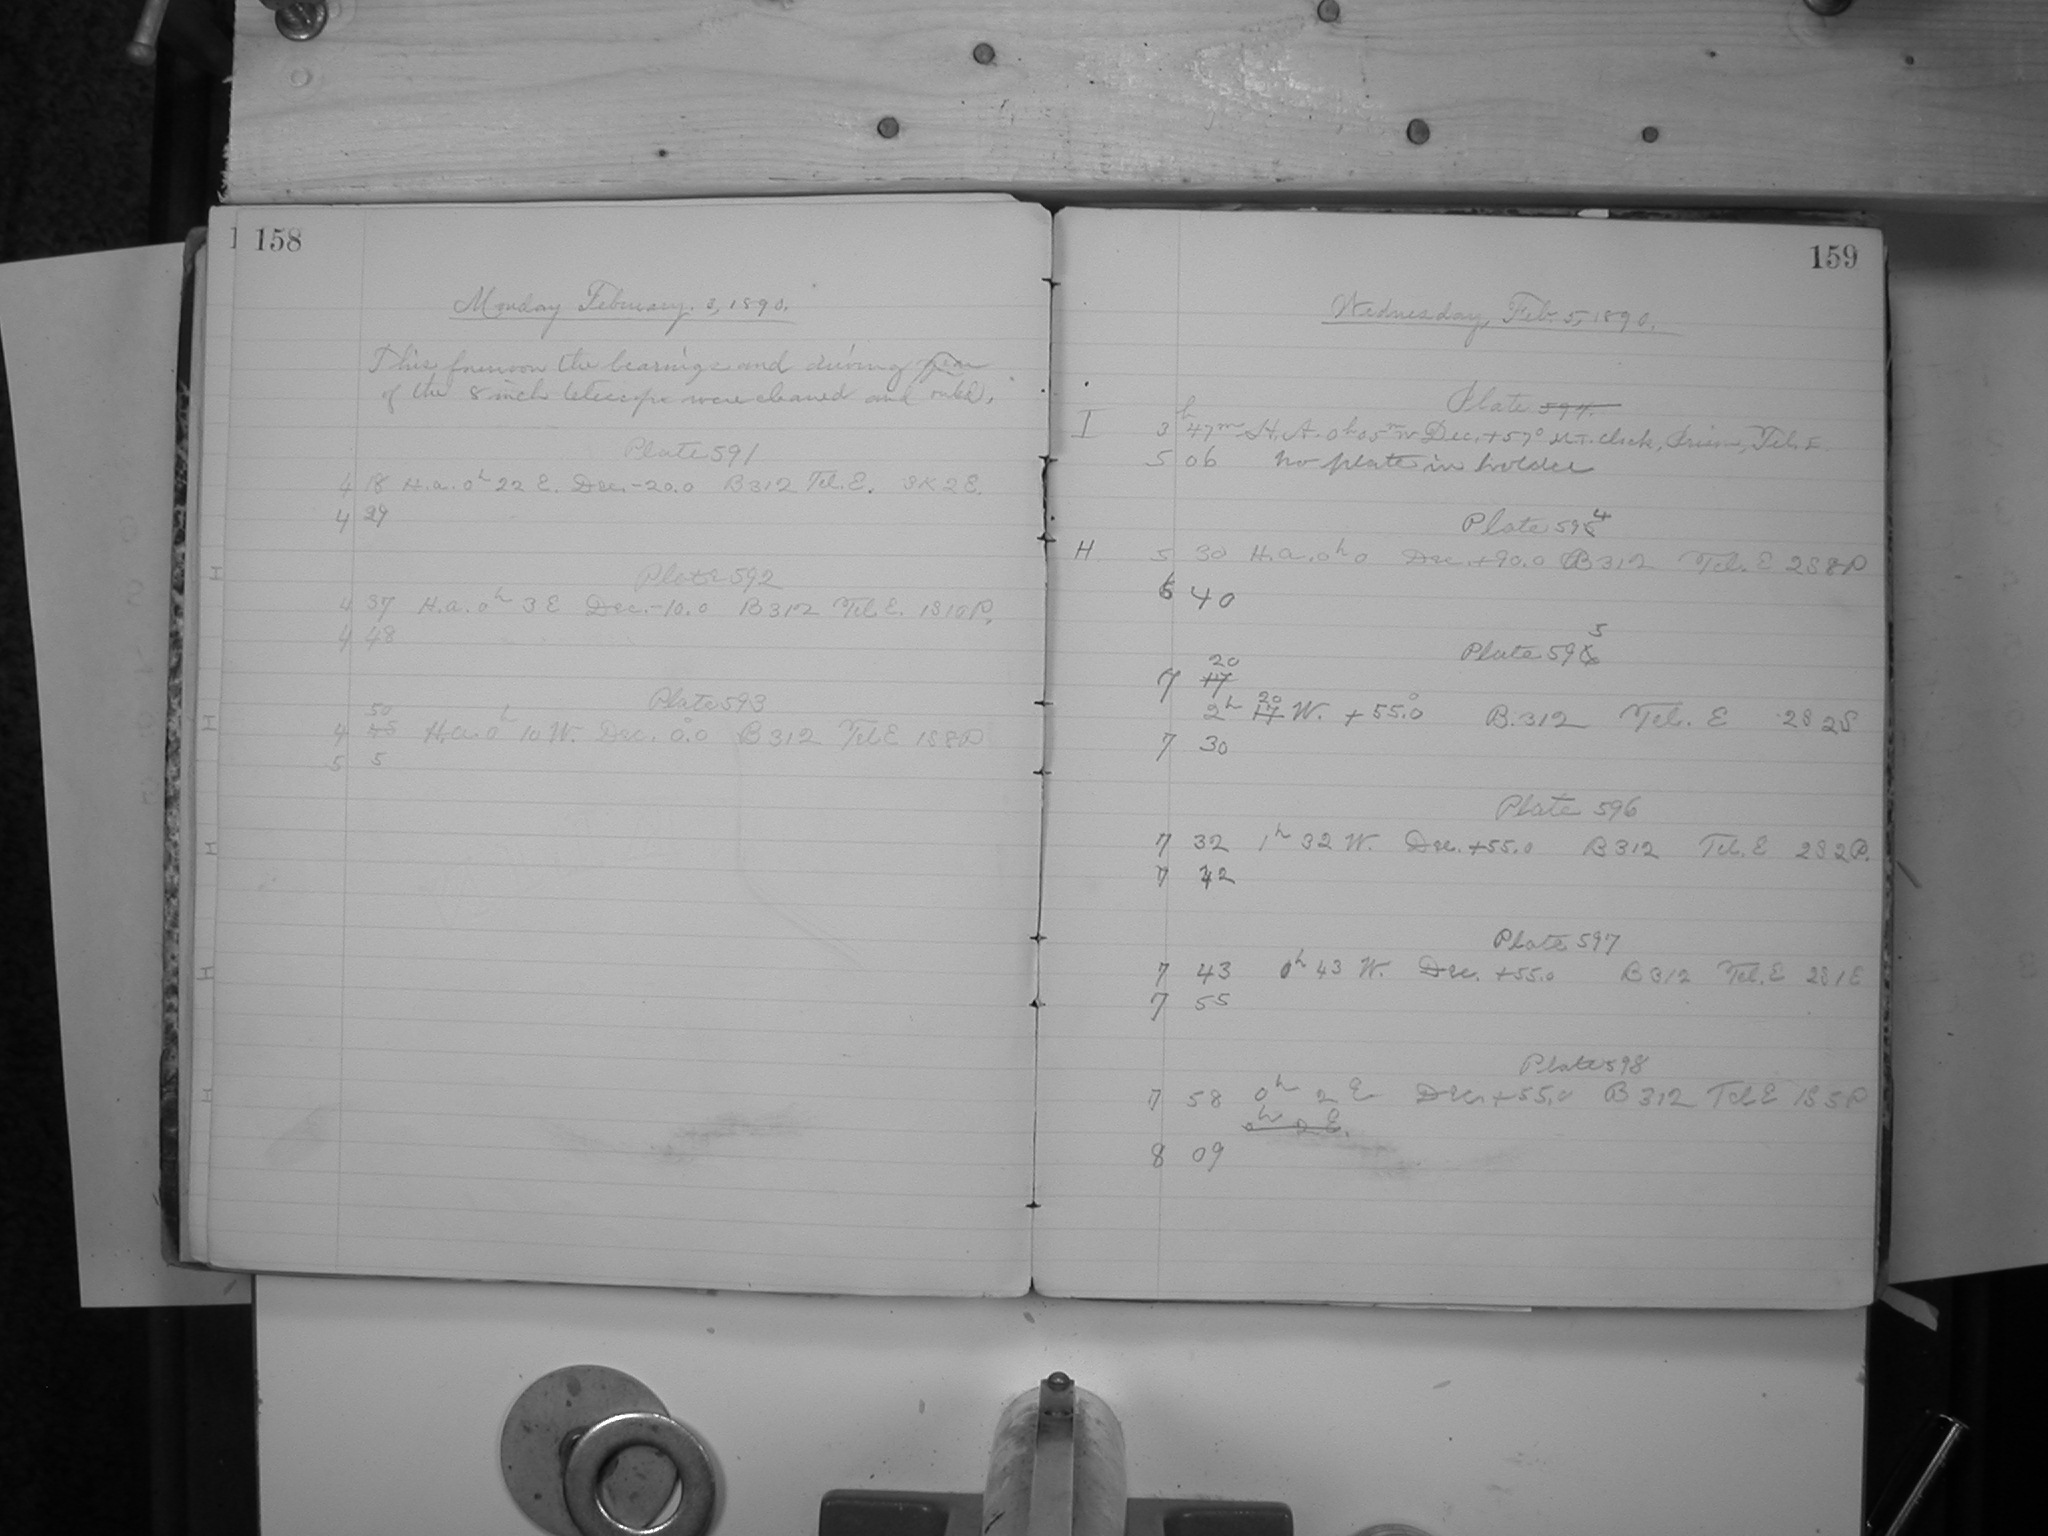 158
Monday February. 3, 1890.
This forenoon the bearings and driving gear
of the 8 inch telescope were cleaned and oiled.
Plate 591
4 18 H.a. 0h 22 E. Dec. -20.0 B312 Tel. E. 3K2E.
4 29
Plate 592
4 37 H.a. 0h 3 E Dec. -10.0 B312 Tel. E. 1S10P.
4 48
Plate 593
50
4 45 H.a. 0h 10 W. Dec. 0°.0 B312 Tel E 1S8P
5 5
H
H
H
H
H
159
Wednesday, Feb. 5, 1890.
Plate 594.
I 3h 47m H.A. 0h 05m W Dec. +57° M.T. clock, Prism, Tel. E.
5 06 no plate in holder
4
Plate 595
H. 5 30 H.a. 0h 0 Dec. +90.0 B312 Tel. E 2S8P
6 40
5
Plate 596
20
7 17
20
2h 17 W. +55°.0 B.312 Tel. E 2S2S
7 30
Plate 596
7 32 1h 32 W. Dec. +55.0 B312 Tel. E 2S2P.
7 42
Plate 597
7 43 0h 43 W. Dec. +55.0 B312 Tel. E 2S1E
7 55
Plate 598
7 58 0h 2 E Dec. +55.0 B312 Tel E 1S5P
0h 2 E.
8 09